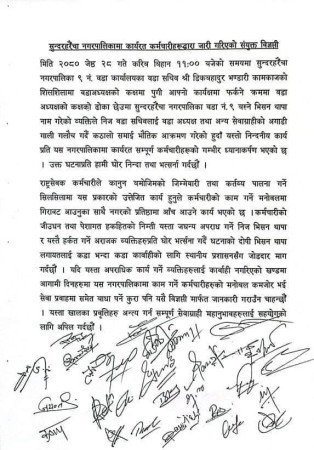 सुन्दरहरैंचा नगरपालिकामा कार्यरत कर्मचारीहरूद्वारा जारी गरिएको संयुक्त विज्ञप्ती
मिति २०८० जेष्ठ २८ गते करिब बिहान ११:०० बजेको समयमा सुन्दरहरैंचा
नगरपालिका ९ नं. वडा कार्यालयका वडा सचिव श्री डिकबहादुर भण्डारी कामकाजको
शिलशिलामा वडाअध्यक्षको कक्षमा पुगी आफ्नो कार्यक्षमा फर्कने क्रममा वडा
अध्यक्षको कक्षको ढोका छेउमा सुन्दरहरैंचा नगरपालिका वडा नं.९ बस्ने भिसन थापा
नाम गरेको व्यक्तिले वडा सचिवलाई वडा अध्यक्ष तथा अन्य सेवाग्राहीको अगाडी
गाली गलौच गर्दै कठालो समाई भौतिक आक्रमण गरेको हुदाँ यस्तो निन्दनीय कार्य
प्रति यस नगरपालिकामा कार्यरत सम्पूर्ण कर्मचारीहरूको गम्भीर ध्यानाकर्षण भएको छ
। उक्त घटनाप्रति हामी घोर निन्दा तथा भर्त्सना गर्दछौं ।
राष्ट्रसेवक कर्मचारीले कानुन बमोजिमको जिम्मेवारी तथा कर्तव्य पालना गर्ने
सिलसिलामा यस प्रकारको उत्तेजित कार्य हुनुले कर्मचारीको काम गर्ने मनोबलमा
गिरावट आउनुका साथै नगरको प्रतिष्ठामा आँच आउने कार्य भएको छ । कर्मचारीको
जीउधन तथा पेशागत हकहितको निम्ती यस्ता जघन्य अपराध गर्ने निज भिसन थापा
र यस्तै हर्कत गर्ने अराजक व्यक्तिहरूप्रति घोर भर्त्सना गर्दै घटनाको दोषी भिसन थापा
लगायतलाई कडा भन्दा कडा कार्बाहीको लागि स्थानीय प्रशासनसँग जोडदार माग
गर्दछौं । यदि यस्ता अपराधिक कार्य गर्ने व्यक्तिहरूलाई कार्बाही नगरिएको खण्डमा
आगामी दिनहरूमा यस नगरपालिकामा काम गर्ने कर्मचारीहरूको मनोबल कमजोर भई
सेवा प्रवाहमा समेत बाधा पर्ने कुरा पनि यसै विज्ञप्ती मार्फत जानकारी गराउँन चाहन्छौं
। यस्ता खालका प्रबृत्तिहरु अन्त्य गर्न सम्पूर्ण सेवाग्राही महानुभावहरूलाई सहयोगको
लागि अपिल गर्दछौं ।